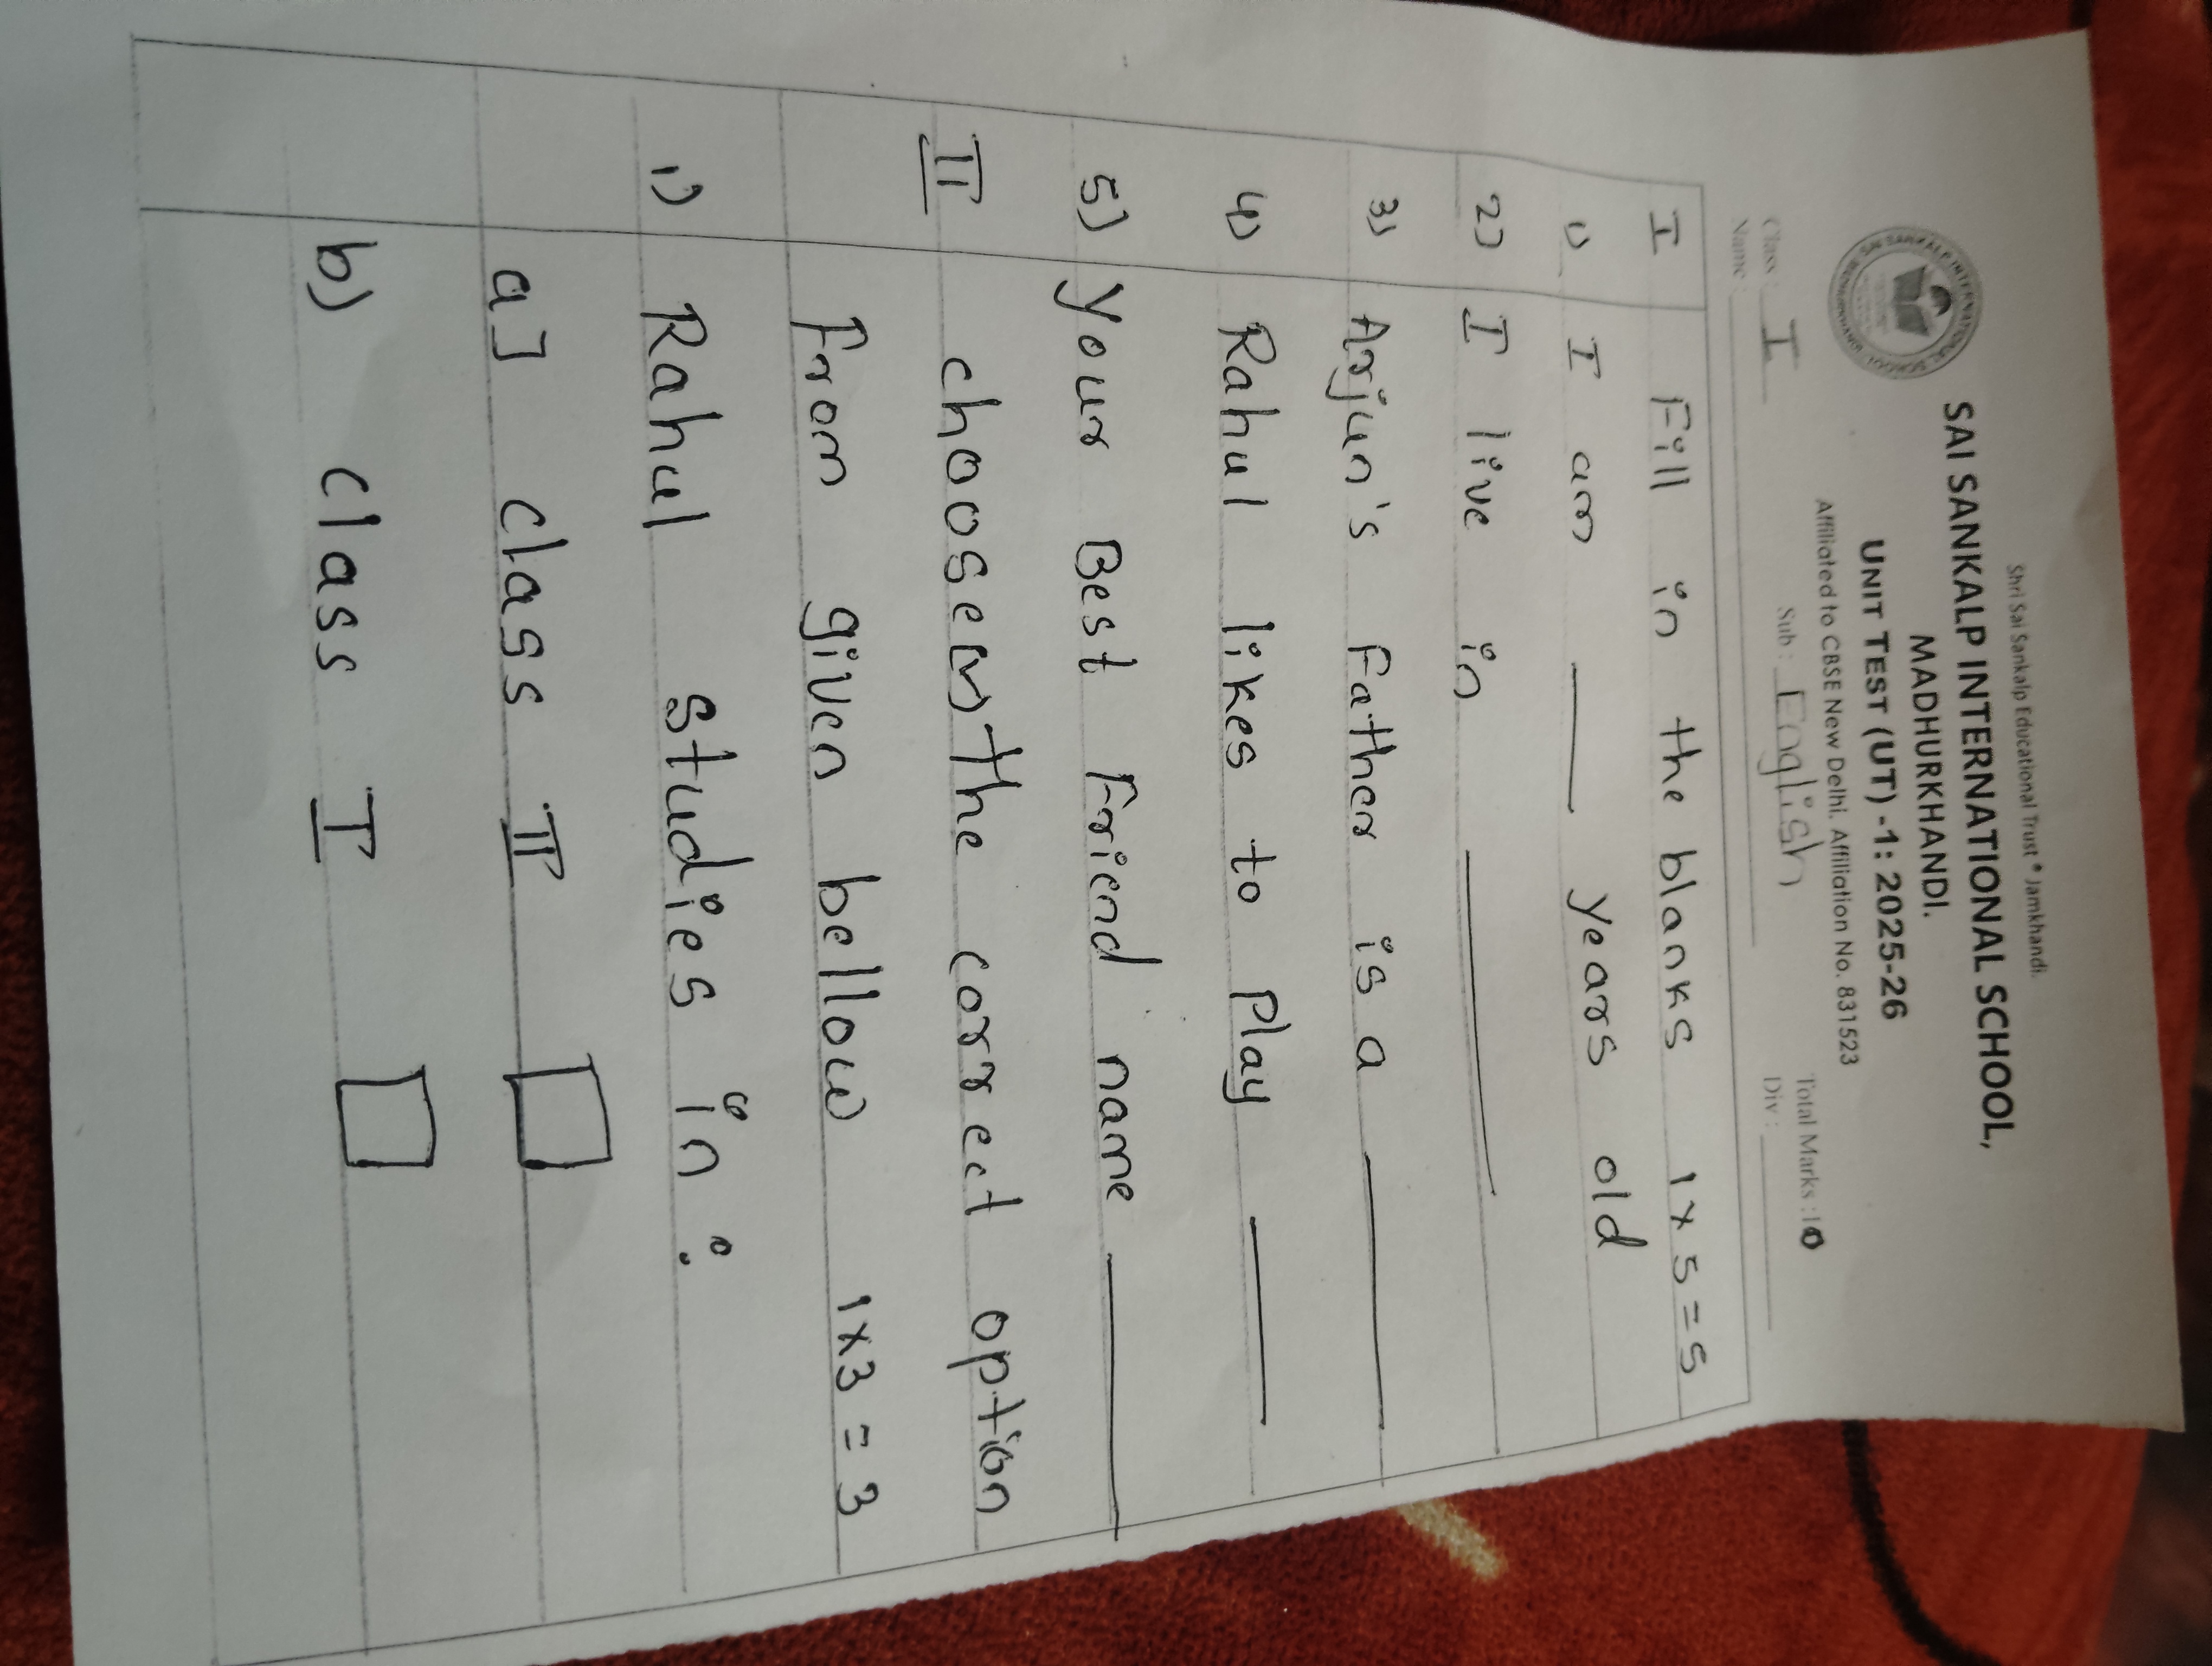 Shri Sai Sankalp Educational Trust * Jamkhandi.
SAI SANKALP INTERNATIONAL SCHOOL,
MADHURKHANDI.
UNIT TEST (UT) -1: 2025-26
Affiliated to CBSE New Delhi. Affiliation No. 831523
Total Marks : 10
Class : I Sub : English Div :
Name :
I Fill in the blanks 1 x 5 = 5
1) I am ___ years old
2) I live in ___
3) Arjun's Father is a ___
4) Rahul likes to Play ___
5) your Best Friend name ___
II choose (✓) the correct option
From given bellow 1 x 3 = 3
1) Rahul studies in :
a] class II
b) class I